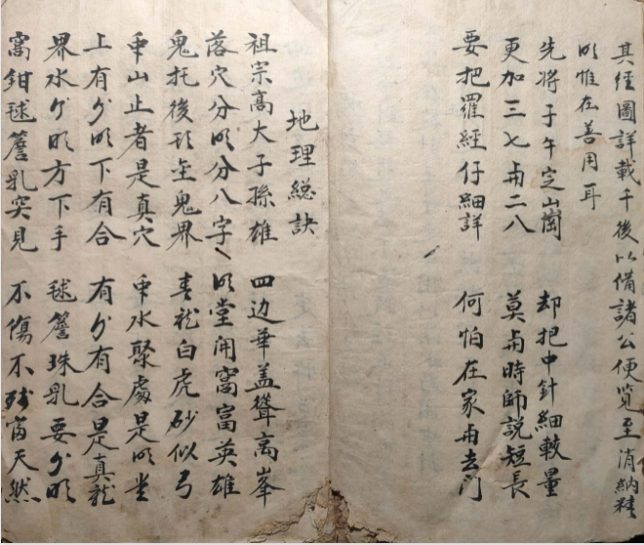 其經圖詳載于後以備諸公便覽至消納精
明惟在善用耳
先将子午定山崗　却把中針細較量
更加三七與二八　莫與時師說短長
要把羅經仔細詳　何怕在家與去门
地理総訣
祖宗高大子孫雄　四边華盖聳高峯
落穴分明分八字　明堂開窩富英雄
鬼托後頭生鬼界　青龍白虎砂似弓
来山止者是真穴　来水聚處是明堂
上有分明下有合　有分有合是真龍
界水分明方下手　毬簷珠乳要分明
窩鉗毬簷乳突見　不傷不残　天然